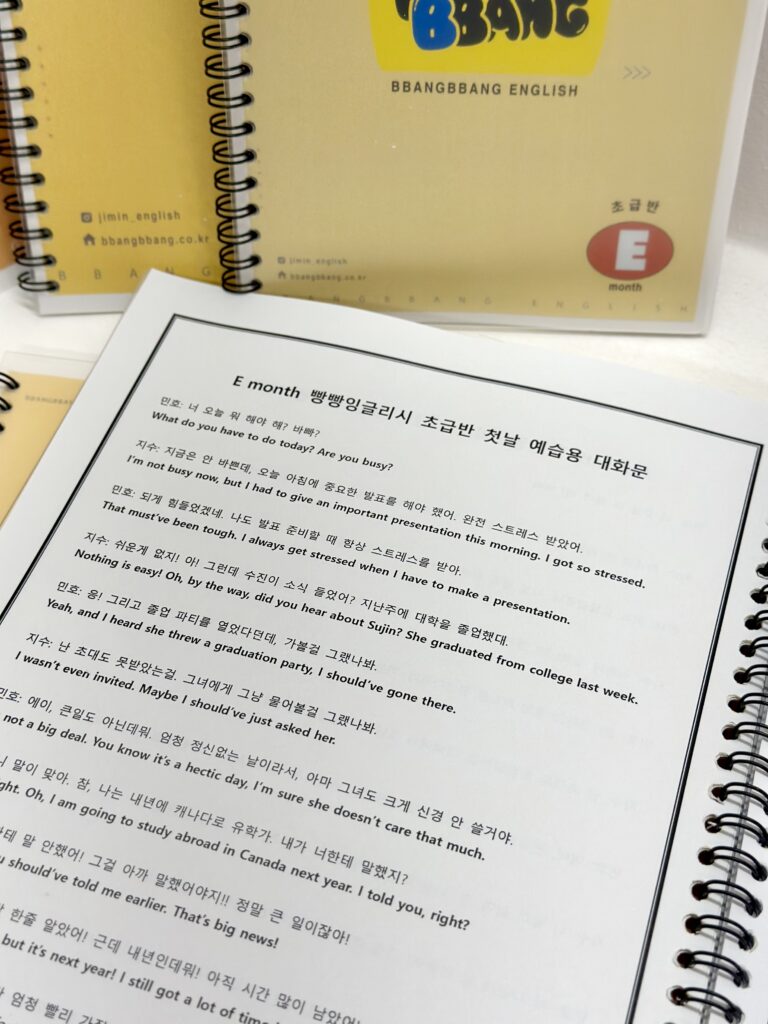 BBANG
BBANGBBANG ENGLISH
>>>
jimin_english
bbangbbang.co.kr
BBANG
초급반
E
month
jimin_english
bbangbbang.co.kr
BBANGBBANG ENGLISH
E month 빵빵잉글리시 초급반 첫날 예습용 대화문
민호: 너 오늘 뭐 해야 해? 바빠?
What do you have to do today? Are you busy?
지수: 지금은 안 바쁜데, 오늘 아침에 중요한 발표를 해야 했어. 완전 스트레스 받았어.
I'm not busy now, but I had to give an important presentation this morning. I got so stressed.
민호: 되게 힘들었겠네. 나도 발표 준비할 때 항상 스트레스를 받아.
That must've been tough. I always get stressed when I have to make a presentation.
지수: 쉬운게 없지! 아! 그런데 수진이 소식 들었어? 지난주에 대학을 졸업했대.
Nothing is easy! Oh, by the way, did you hear about Sujin? She graduated from college last week.
민호: 응! 그리고 졸업 파티를 열었다던데, 가볼걸 그랬나봐.
Yeah, and I heard she threw a graduation party, I should've gone there.
지수: 난 초대도 못받았는걸. 그녀에게 그냥 물어볼걸 그랬나봐.
I wasn't even invited. Maybe I should've just asked her.
민호: 에이, 큰일도 아닌데뭐. 엄청 정신없는 날이라서, 아마 그녀도 크게 신경 안 쓸거야.
not a big deal. You know it's a hectic day, I'm sure she doesn't care that much.
말이 맞아. 참, 나는 내년에 캐나다로 유학가. 내가 너한테 말했지?
ght. Oh, I am going to study abroad in Canada next year. I told you, right?
말 안했어! 그걸 아까 말했어야지!! 정말 큰 일이잖아!
u should've told me earlier. That's big news!
한줄 알았어! 근데 내년인데뭐! 아직 시간 많이 남았어!
but it's next year! I still got a lot of time
엄청 빨리